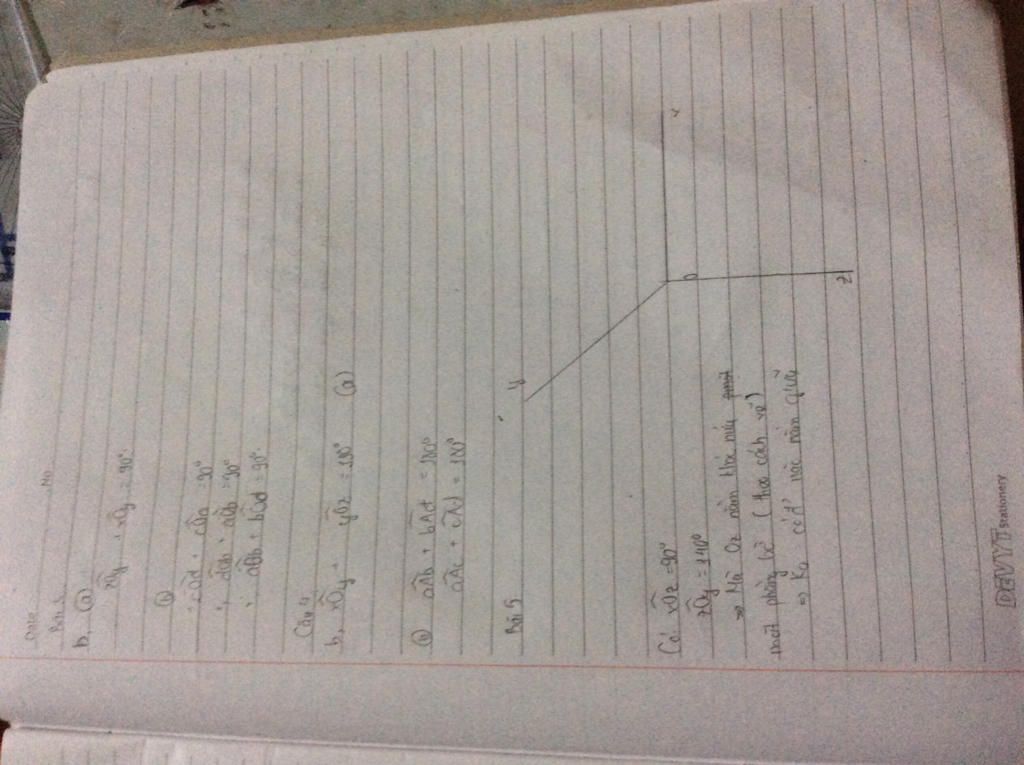 Date No
Bài 3
b, (a)
xOy + xOy = 90°
(b)
cOd + cOa = 90°
dOb + aOb = 90°
aOb + bOd = 90°
Câu 4
b, xOy + yOz = 180° (a)
(b) aAb + bAd = 180°
aAc + cAd = 180°
Bài 5
y
x
O
z
Có xOz = 90°
zOy = 140°
⇒ Mà Oz nằm khác nửa
mặt phẳng bờ (theo cách vẽ)
⇒ Ko có đ' nào nằm giữa
DEVYT Stationery